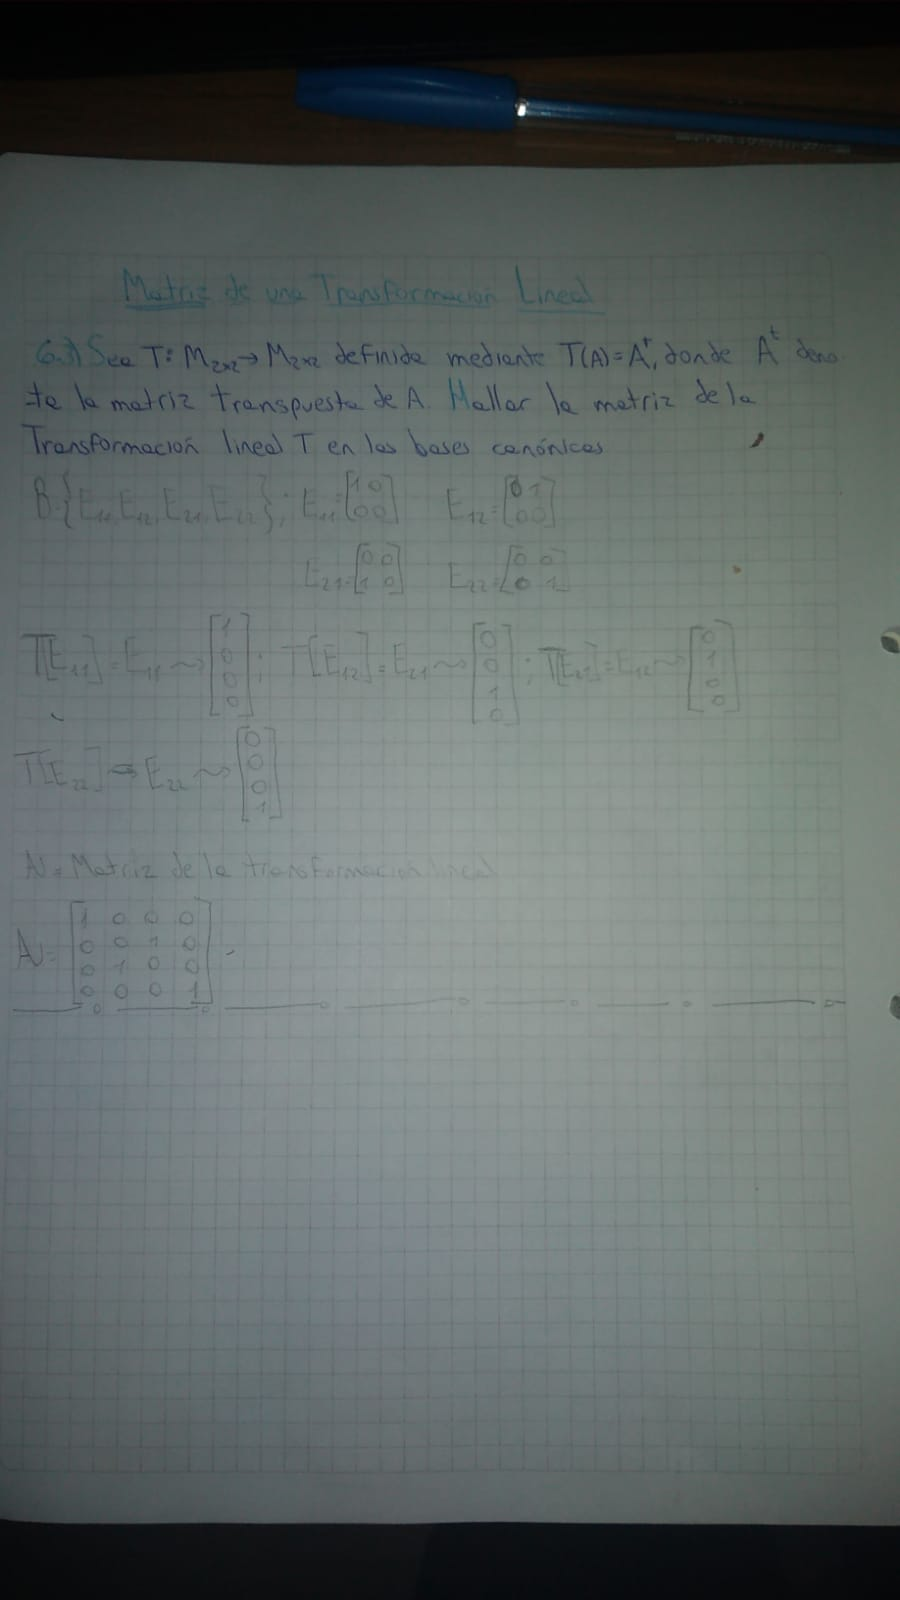 Matriz de una Transformación Lineal
6.3) Sea T: M₂ₓ₂→M₂ₓ₂ definida mediante T(A)=Aᵗ, donde Aᵗ deno
ta la matriz transpuesta de A. Hallar la matriz de la
Transformación lineal T en las bases canónicas
B={E₁₁,E₁₂,E₂₁,E₂₂}; E₁₁=[1 0; 0 0] E₁₂=[0 1; 0 0]
E₂₁=[0 0; 1 0] E₂₂=[0 0; 0 1]
T[E₁₁]=E₁₁ ⇝ [1; 0; 0; 0]; T[E₁₂]=E₂₁ ⇝ [0; 0; 1; 0]; =E₁₂ ⇝ [0; 1; 0; 0]
T[E₂₂] = E₂₂ ⇝ [0; 0; 0; 1]
Matriz de la transformación lineal
[1 0 0 0
0 0 1 0
0 1 0 0
0 0 0 1]